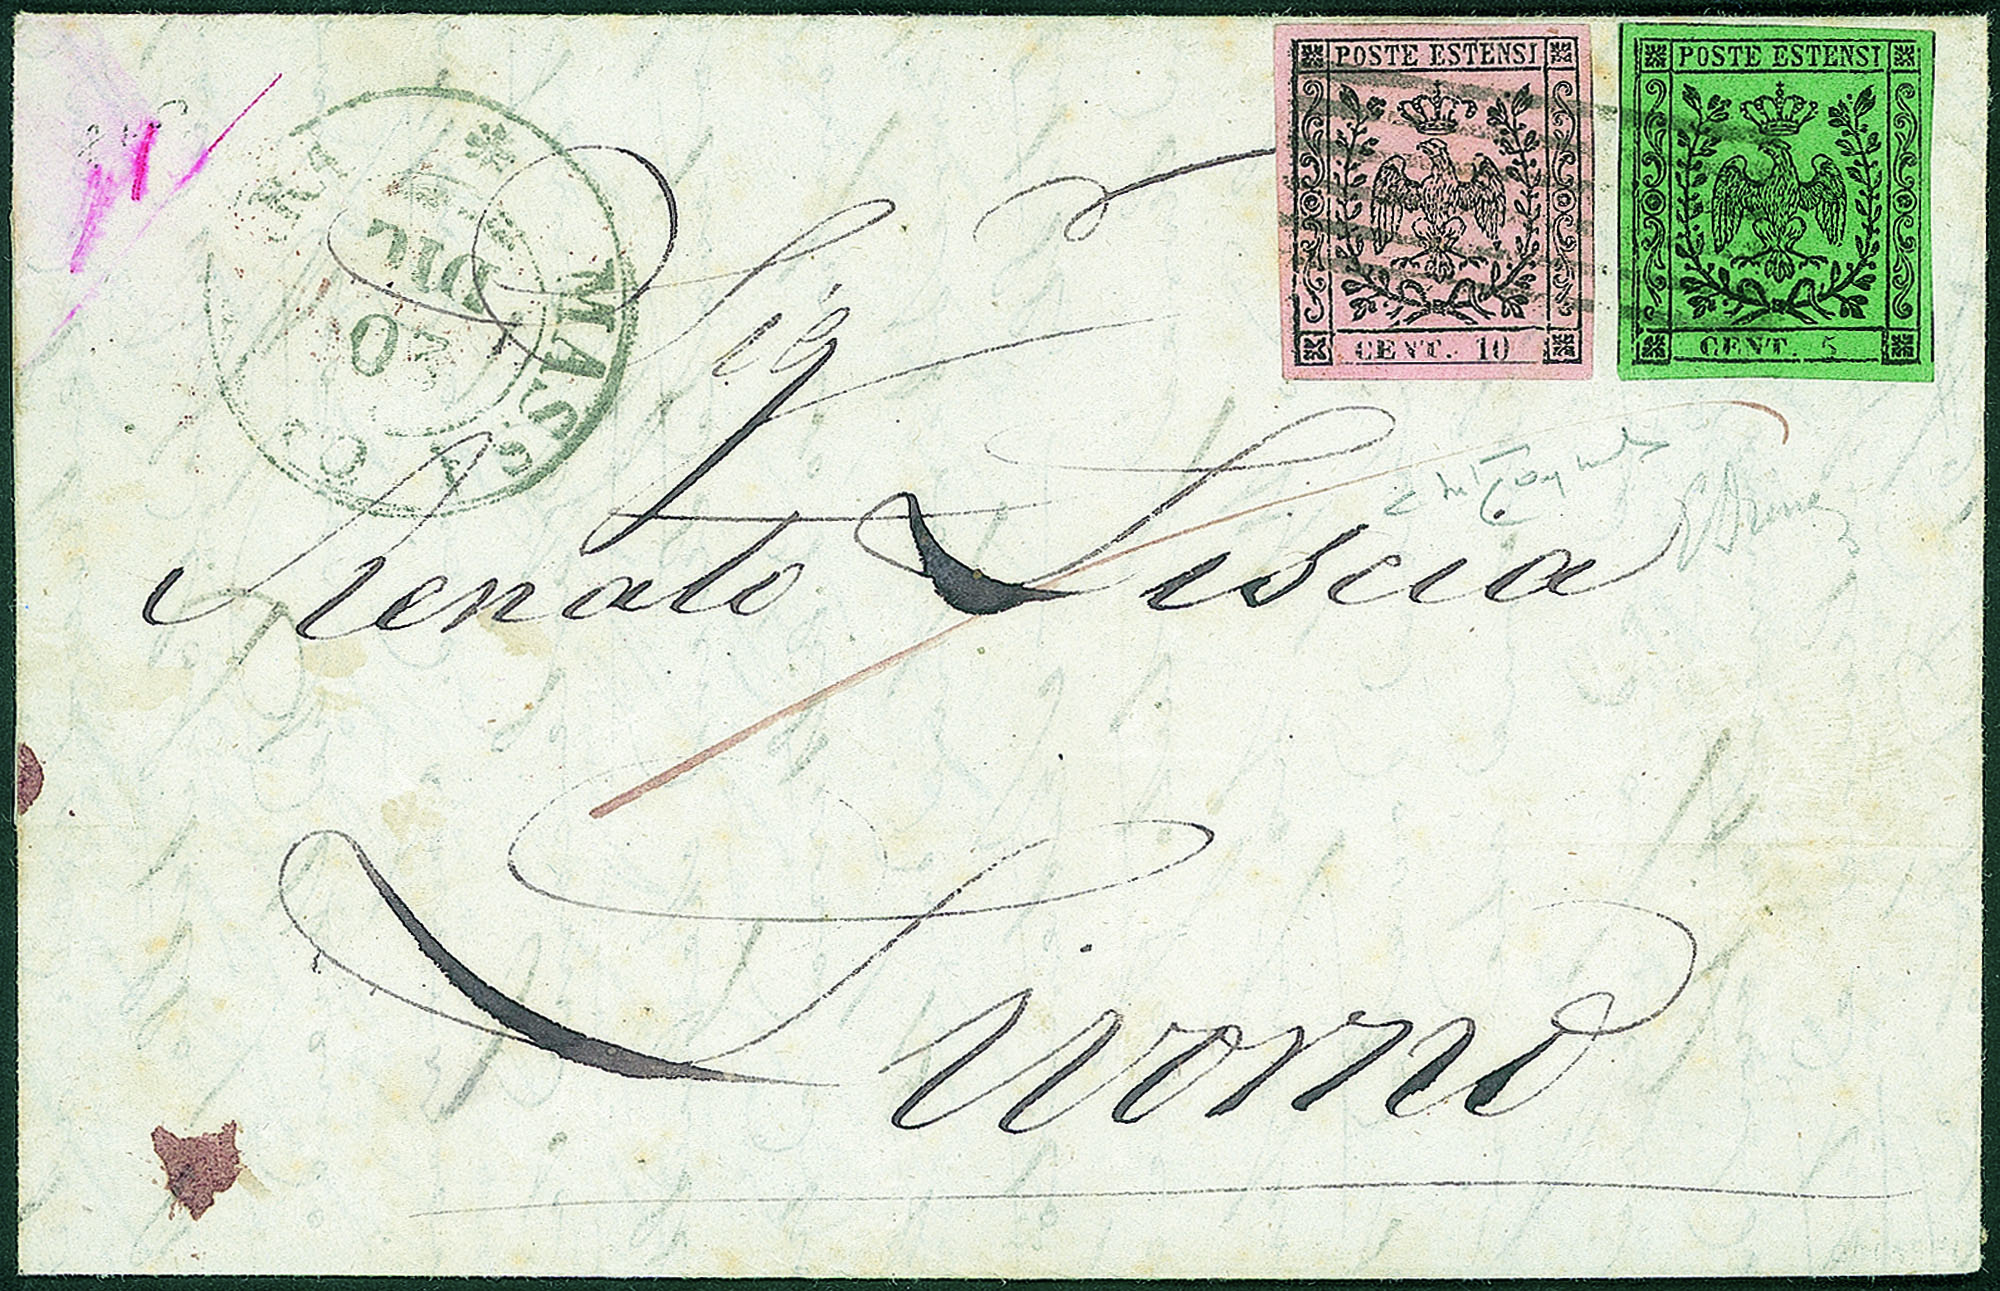 POSTE ESTENSI
CENT. 10
POSTE ESTENSI
CENT. 5
MASSA
20
Sig.
Renato Liscia
Livorno